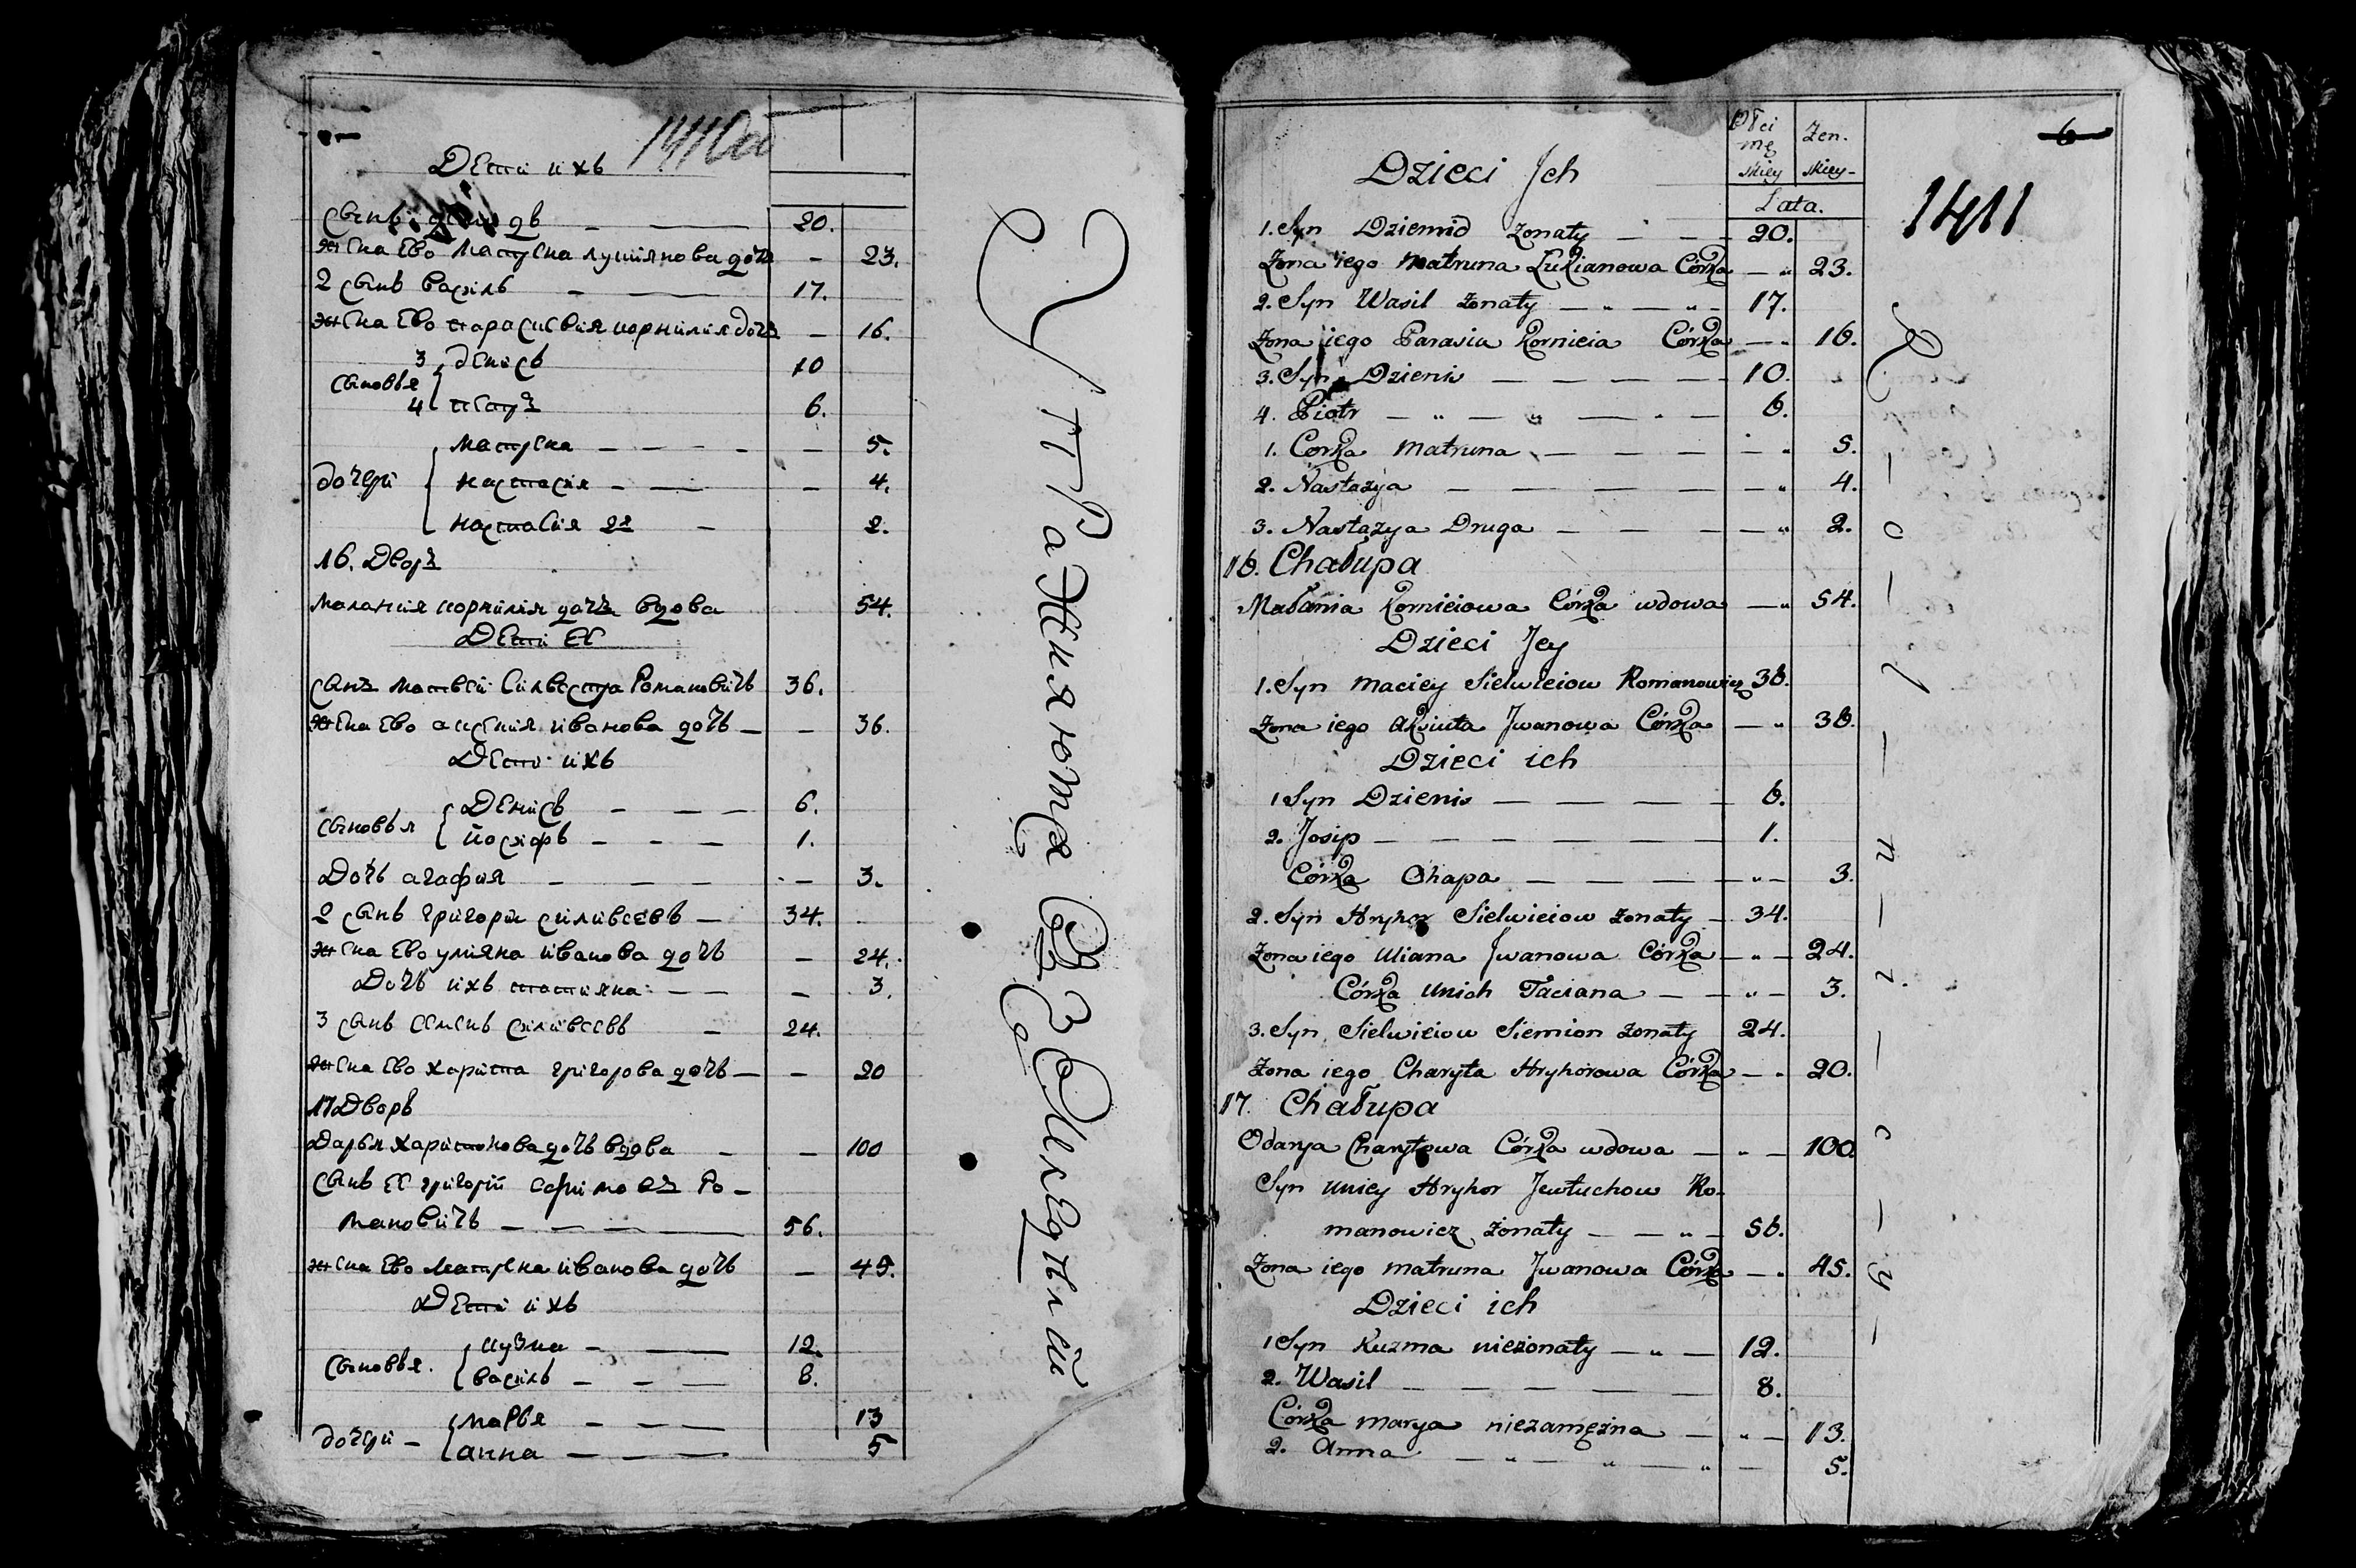 1411об
Дети ихъ
Сынъ демидъ — 20.
Жена Ево Матрена лукiянова дочь — 23.
2 Сынъ Василь — 17.
Жена Ево парасковiя корнилiя дочь — 16.
3 денисъ 10
Сыновья
4 петръ 6.
матрена — — — — 5.
дочери настасiя — — — 4.
настасiя 2я — 2.
16. Дворъ
Маланiя корнилiя дочь вдова 54.
Дети Ее
Сынъ матвей Силвестра Романовичъ 36.
Жена Ево аксенiя иванова дочь — — 36.
Дети ихъ
Денисъ — — — 6.
Сыновья
йосифъ — — — 1.
Дочь агафия — — — — 3.
2 Сынъ григорiй силивеевъ — 34.
Жена Ево улiяна иванова дочь — 24.
Дочь ихъ татiяна — — — 3.
3 Сынъ Семенъ силивеевъ — 24.
Жена Ево харита григорова дочь — — 20
17 Дворъ
Дарья харитонова дочь вдова — — 100
Сынъ Ее григорiй Ро-
мановичъ — — — 56.
Жена Ево Матрена иванова дочь — 45.
Дети ихъ
кузма — — 12.
Сыновья.
василь — — — 8.
марья — — — 13
дочери —
анна — — — 5
Упражняются въ Земледелии
6
1411
Dzieci Jch
Płci mę skiey
Zen. skiey
Lata.
1. Syn Dziemid żonaty — — — 20.
Żona iego Matruna Łukianowa Córka — " 23.
2. Syn Wasil żonaty — " — " — 17.
Żona iego Parasia Kornieia Córka — " 16.
3. Syn Dzienis — — — — — 10.
4. Piotr — " — " — " — 6.
1. Corka Matruna — — — — " 5.
2. Nastazya — — — — — " 4.
3. Nastazya Druga — — — — " 2.
16. Chałupa
Małania Kornieiowa Córka wdowa — " 54.
Dzieci Jey
1. Syn Maciey Sielwieiow Romanowicz 36.
Żona iego Aksiuta Jwanowa Córka — " 36.
Dzieci ich
1 Syn Dzienis — — — — — 6.
2. Josip — — — — — — 1.
Córka Ohapa — — — — " — 3.
2. Syn Hryhor Sielwieiow żonaty — 34.
Żona iego Uliana Jwanowa Córka — " — 24.
Córka Unich Taciana — — " — 3.
3. Syn Sielwieiow Siemion żonaty 24.
Żona iego Charyta Hryhorowa Córka — " 20.
17. Chałupa
Odarya Charytowa Córka wdowa — " — 100
Syn Uniey Hryhor Jewtuchow Ro-
manowicz żonaty — — " — 56.
Żona iego Matruna Jwanowa Córka — " 45.
Dzieci ich
1 Syn Kuzma nieżonaty — " — 12.
2. Wasil — — — — — 8.
Córka Marya niezamężna — " — 13.
2. Anna — " — " — " — 5.
R — o — l — n — i — c — y —